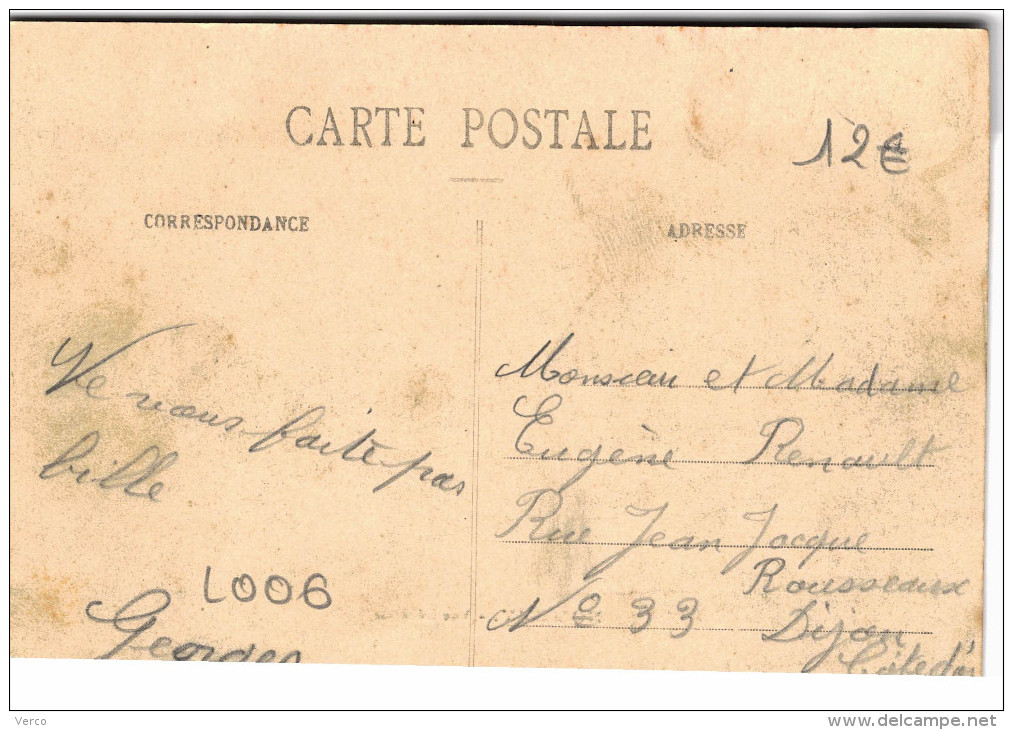 CARTE POSTALE
12€
CORRESPONDANCE
Ne vous faite pas
bille
L006
Georges
ADRESSE
Monsieur et Madame
Eugène Renault
Rue Jean Jacque
Rousseaux
Nº 33 Dijon
Côte d'or
Verco
www.delcampe.net